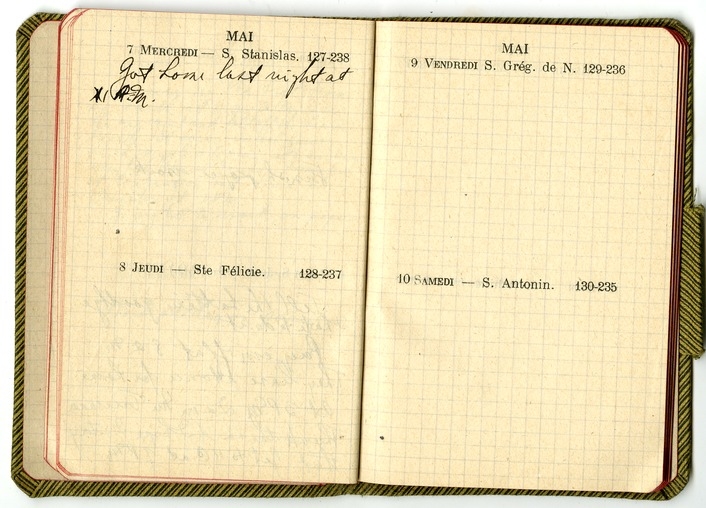 MAI
7 MERCREDI — S. Stanislas. 127-238
Got home last night at
XI P.M.
8 JEUDI — Ste Félicie. 128-237
MAI
9 VENDREDI S. Grég. de N. 129-236
10 SAMEDI — S. Antonin. 130-235